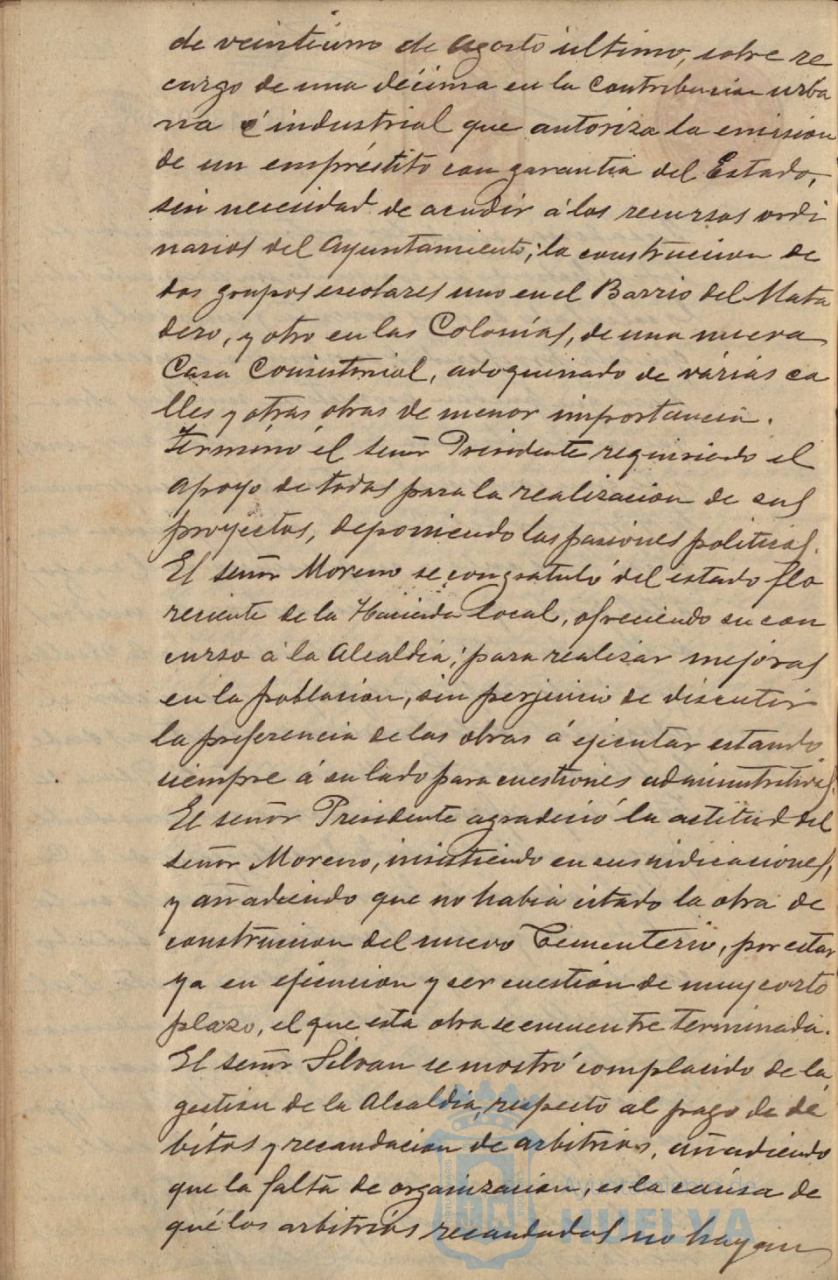 de veintiuno de Agosto ultimo, sobre re
cargo de una décima en la Contribucion urba
na é industrial que autoriza la emision
de un empréstito con garantia del Estado,
sin necesidad de acudir á los recursos ordi
narios del Ayuntamiento; la construccion de
dos grupos escolares uno en el Barrio del Mata
dero, y otro en las Colonias, de una nueva
Casa Consistorial, adoquinado de várias ca
lles y otras obras de menor importancia.
Terminó el señor Presidente requiriendo el
apoyo de todos para la realizacion de sus
proyectos, deponiendo las pasiones politicas.
El señor Moreno se congratuló del estado flo
reciente de la Hacienda local, ofreciendo su con
curso á la Alcaldia, para realizar mejoras
en la poblacion, sin perjuicio de discutir
la preferencia de las obras á ejecutar estando
siempre á su lado para cuestiones administrativas.
El señor Presidente agradeció la actitud del
señor Moreno, insistiendo en sus indicaciones,
y añadiendo que no habia citado la obra de
construccion del nuevo Cementerio, por estar
ya en ejecucion y ser cuestion de muy corto
plazo, el que esta obra se encuentre terminada.
El señor Silvan se mostró complacido de la
gestion de la Alcaldia, respecto al pago de dé
bitos y recaudacion de arbitrios, añadiendo
que la falta de organizacion, es la causa de
qué los arbitrios recaudados no hayan
HUELVA